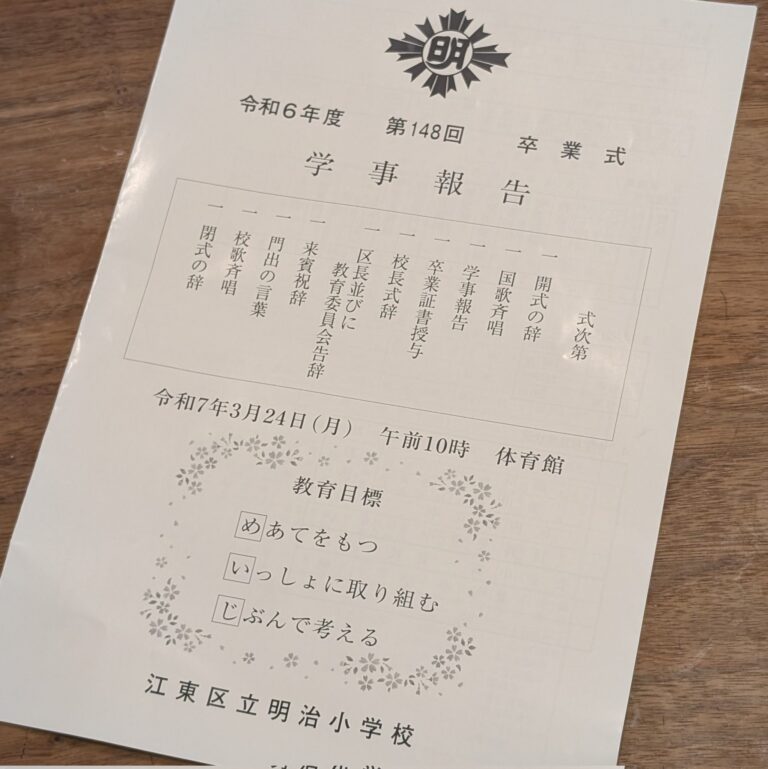 明
令和6年度 第148回 卒業式
学事報告
式次第
一 開式の辞
一 国歌斉唱
一 学事報告
一 卒業証書授与
一 校長式辞
一 区長並びに
教育委員会告辞
一 来賓祝辞
一 門出の言葉
一 校歌斉唱
一 閉式の辞
令和7年3月24日(月) 午前10時 体育館
教育目標
めあてをもつ
いっしょに取り組む
じぶんで考える
江東区立明治小学校